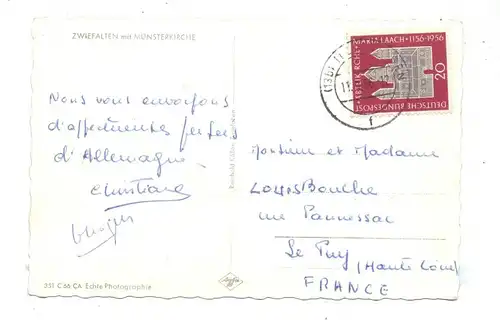 ZWIEFALTEN mit MÜNSTERKIRCHE
Nous vous envoyons
d'affectueuses pensées
d'Allemagne
Christiane
Monsieur et Madame
Louis Bouche
rue Pannessac
Le Puy (Haute Loire)
FRANCE
351 C 66 CA Echte Photographie
Agfa
ABTEIKIRCHE MARIA LAACH · 1156-1956
DEUTSCHE BUNDESPOST
20
f